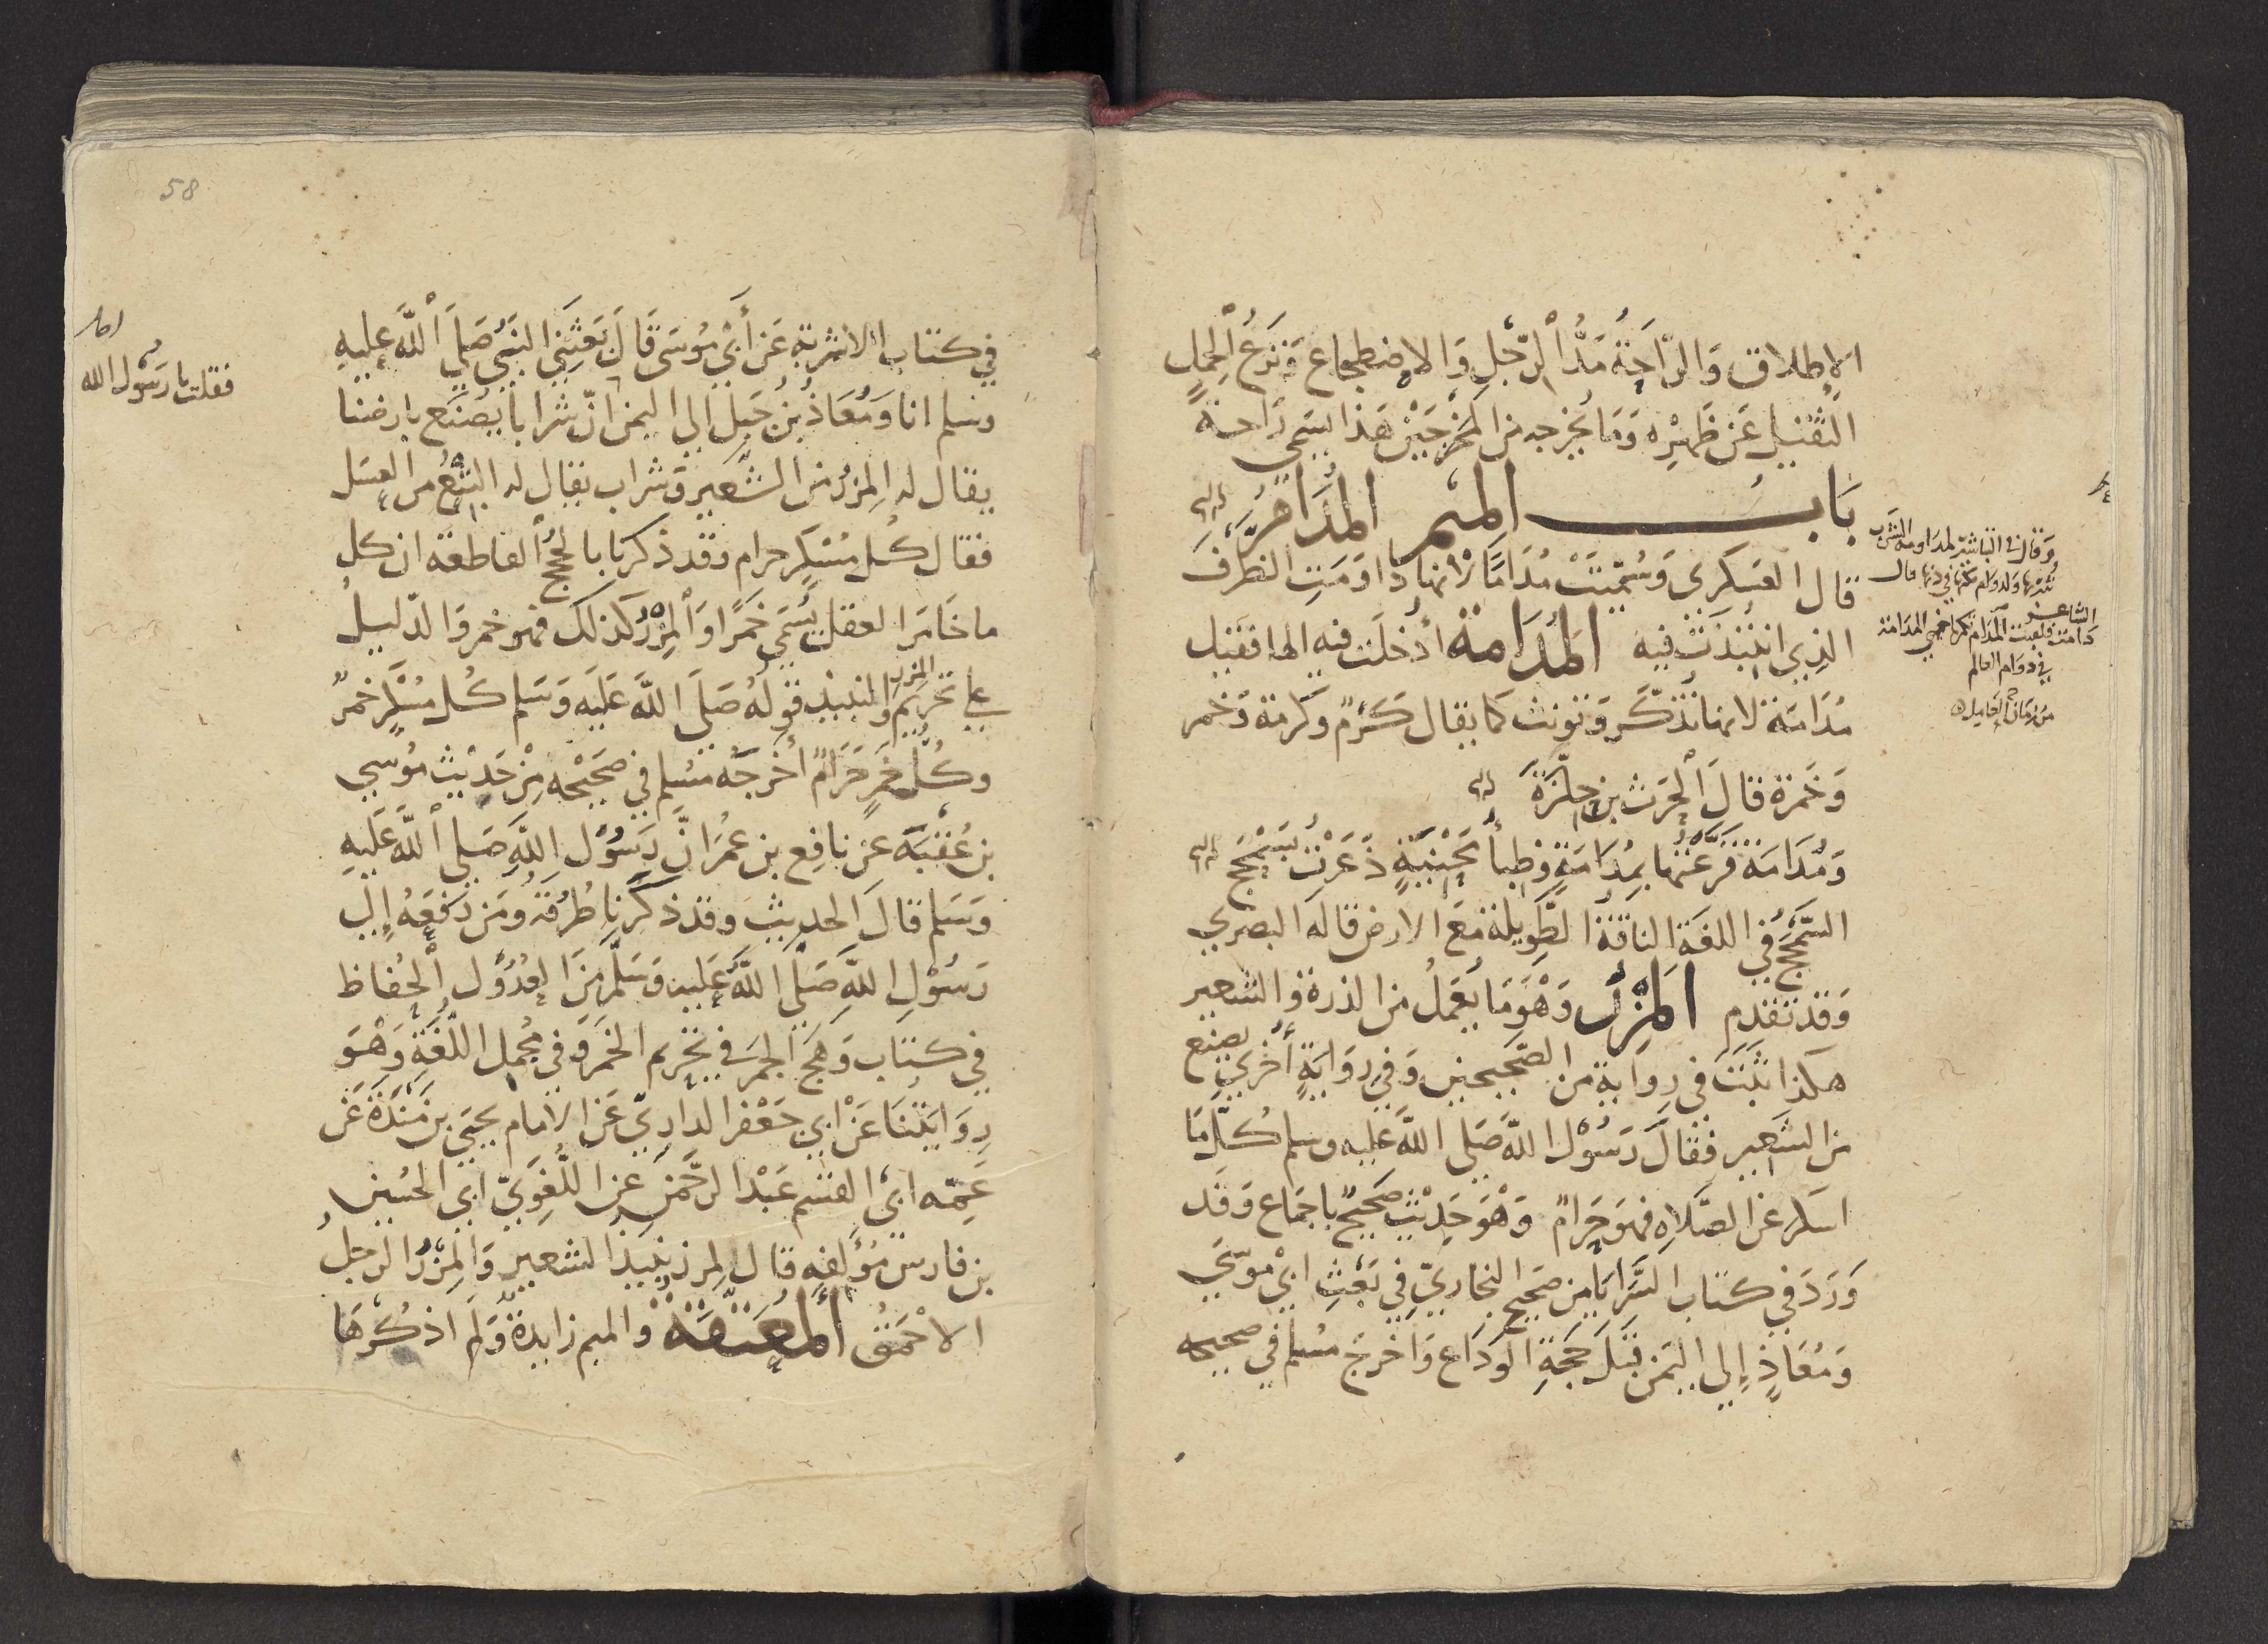 الإطلاق وَالرَّاحَةُ مَدُّ الرِّجْلِ وَالاضطجاع وَنَزعُ الْحِمْلِ
الثقيل عَن ظَهْرِه وَمَا يخرجه من المَخْرَجَيْن هَذا يسَمى رَاحة
بَابُ المِيم المُدَامُ
قال العَسكرى وَسُمّيَتْ مُدَامًا لانها دَاوَمَتِ الظرفَ
الذِي انتُبذت فيه المُدَامة أدْخلَت فيه الها فقيل
مُدَامَة لانها تُذكَّر وَتونث كما يقال كَرْمٌ وكرْمة وَخمر
وَخَمرة قالَ الْحَرث بن حِلّزَةَ
وَمُدَامَة قرّعْتُها بمُدَامَةٍ وَظبا مَحْنِيَةٍ ذَعَرْتُ بسَمْحَج
السَّمْحَجُ في اللغَة الناقة الطَّوِيلة مَع الارض قاله البصري
وَقد تقدم المِزْرُ وَهْوَ مَا يعْمَلُ من الذرة وَالشعير
هكذا ثبَتَ في رِوَاية من الصَّحيحين وَفي رِوَايَةٍ أُخْرَي يصنع
من الشعِير فقالَ رَسُوْل اللَّه صَلى اللَّه عَليه وسلم كُلّ مَا
اسكر عَن الصَّلاةِ فهوَ حَرَامٌ وَهْوَ حَدِيْث صَحيحٌ باجمَاع وَقد
وَرَدَ في كتاب السَّرَايَا من صَحيح البخاريّ في بَعْثِ ابِيْ موسَى
وَمُعَاذٍ إلى اليَمَن قبْلَ حَجَّةِ الوَدَاع وَاخرَجَ مُسْلم في صحيحه
وَقال في
الشاعر
في دوَام العالم
58
في كتاب الاشربة عَن أَبِيْ مُوسَى قَالَ بَعَثَنِي النبيُّ صَلى اللَّه عليهِ
وسلم انا وَمُعَاذُ بْنُ جَبَل إلى اليمن انّ شرابا يُصْنَع بارضنا
يقال له المِزْرُ من الشَّعِير وَشراب يقال له البِتْعُ من العسَل
فقال كُل مُسْكِرٍ حرام وقد ذكرنا بالحُجَج القاطعة ان كل
ما خَامَر العقل يُسَمى خَمْرًا وَالْمِزْرُ كذلك فهو خمر وَالدَّليلُ
على تحريم المزر والنبيذ قولهُ صَلى اللَّه عَليه وَسَلم كُل مُسْكِرٍ خمرٌ
وكُلُّ خَمرٍ حَرَامٌ أخرجَه مُسْلم في صَحِيْحه مِنْ حَدِيْث مُوْسى
بن عُقْبَةَ عن نافِع بن عُمَرَ انَّ رَسُوْل اللَّهِ صَلى اللَّه عَليهِ
وَسَلم قال الحديث وقد ذكَرنا طُرُقهُ وَمَن رَفَعَهُ إلى
رَسُوْلِ اللَّهِ صَلَّى اللَّه عَليه وَسَلّم مِنَ العُدُوْل الْحُفاظ
في كتاب وَهَج الجَمْر في تحْرِيم الخَمْر وَفي مُجْمل اللُّغَةِ وَهْوَ
رِوَايَتُنا عَنْ ابي جَعْفر الدارِيّ عَن الإمام يحيى بن مَنْدَةَ عَن
عَمّه ابي القسم عَبْد الرَّحْمَنِ عن اللُّغَوِيّ ابي الحُسين
بن فارسٍ مُؤَلفِهِ قال المِزر نبيذ الشعير وَالمِزْرُ الرجلُ
الاحْمَقُ المُعَتّقَةُ والميم زايدة وَلم اذكُرْهَا
فقلت يا رَسُوْل الله